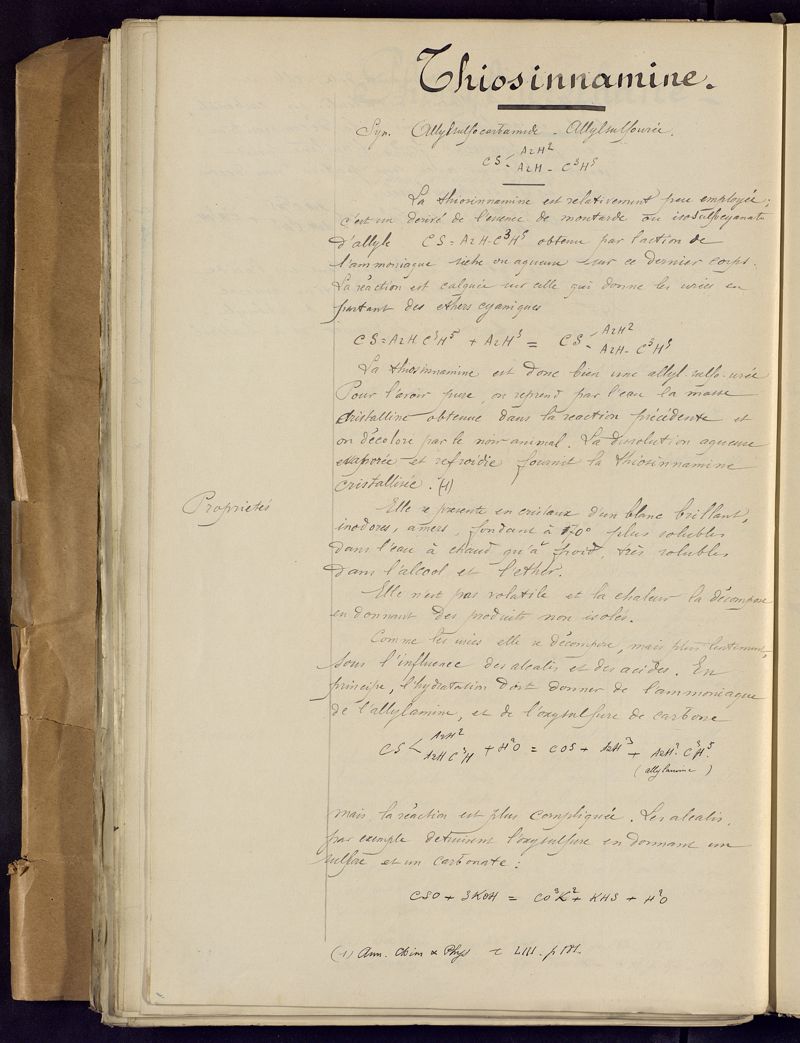 Thiosinnamine.
Syn. Allylsulfocarbamide - Allylsulfourée.
CS < AzH²
AzH - C³H⁵
La thiosinnamine est relativement peu employée ;
c'est un dérivé de l'essence de moutarde ou isosulfocyanate
d'allyle CS = Az H·C³H⁵ obtenu par l'action de
l'ammoniaque sèche ou aqueuse sur ce dernier corps.
La réaction est calquée sur celle qui donne les urées en
partant des ethers cyaniques
CS = AzH C³H⁵ + AzH³ = CS < AzH²
AzH - C³H⁵
La thiosinnamine est donc bien une allyl-sulfo-urée
Pour l'avoir pure, on reprend par l'eau la masse
cristalline obtenue dans la réaction précédente et
on décolore par le noir animal. La dissolution aqueuse
evaporée et refroidie fournit la thiosinnamine
cristallisée. (1)
Propriétés
Elle se présente en cristaux d'un blanc brillant,
inodores, amers, fondant à 70° plus solubles
dans l'eau à chaud qu'à froid, très solubles
dans l'alcool et l'ether.
Elle n'est pas volatile et la chaleur la décompose
en donnant des produits non isolés.
Comme les urées elle se décompose, mais plus lentement,
sous l'influence des alcalis et des acides. En
principe, l'hydratation doit donner de l'ammoniaque
de l'allylamine, et de l'oxysulfure de carbone
CS < AzH²
AzH C³H⁵ + H²O = COS + AzH³ + AzH². C³H⁵
(allylamine)
mais la réaction est plus compliquée. Les alcalis,
par exemple detruisent l'oxysulfure en donnant un
sulfure et un carbonate :
CSO + 3KOH = CO³K² + KHS + H²O
(1) Ann. Chim & Phys t LIII. p 181.